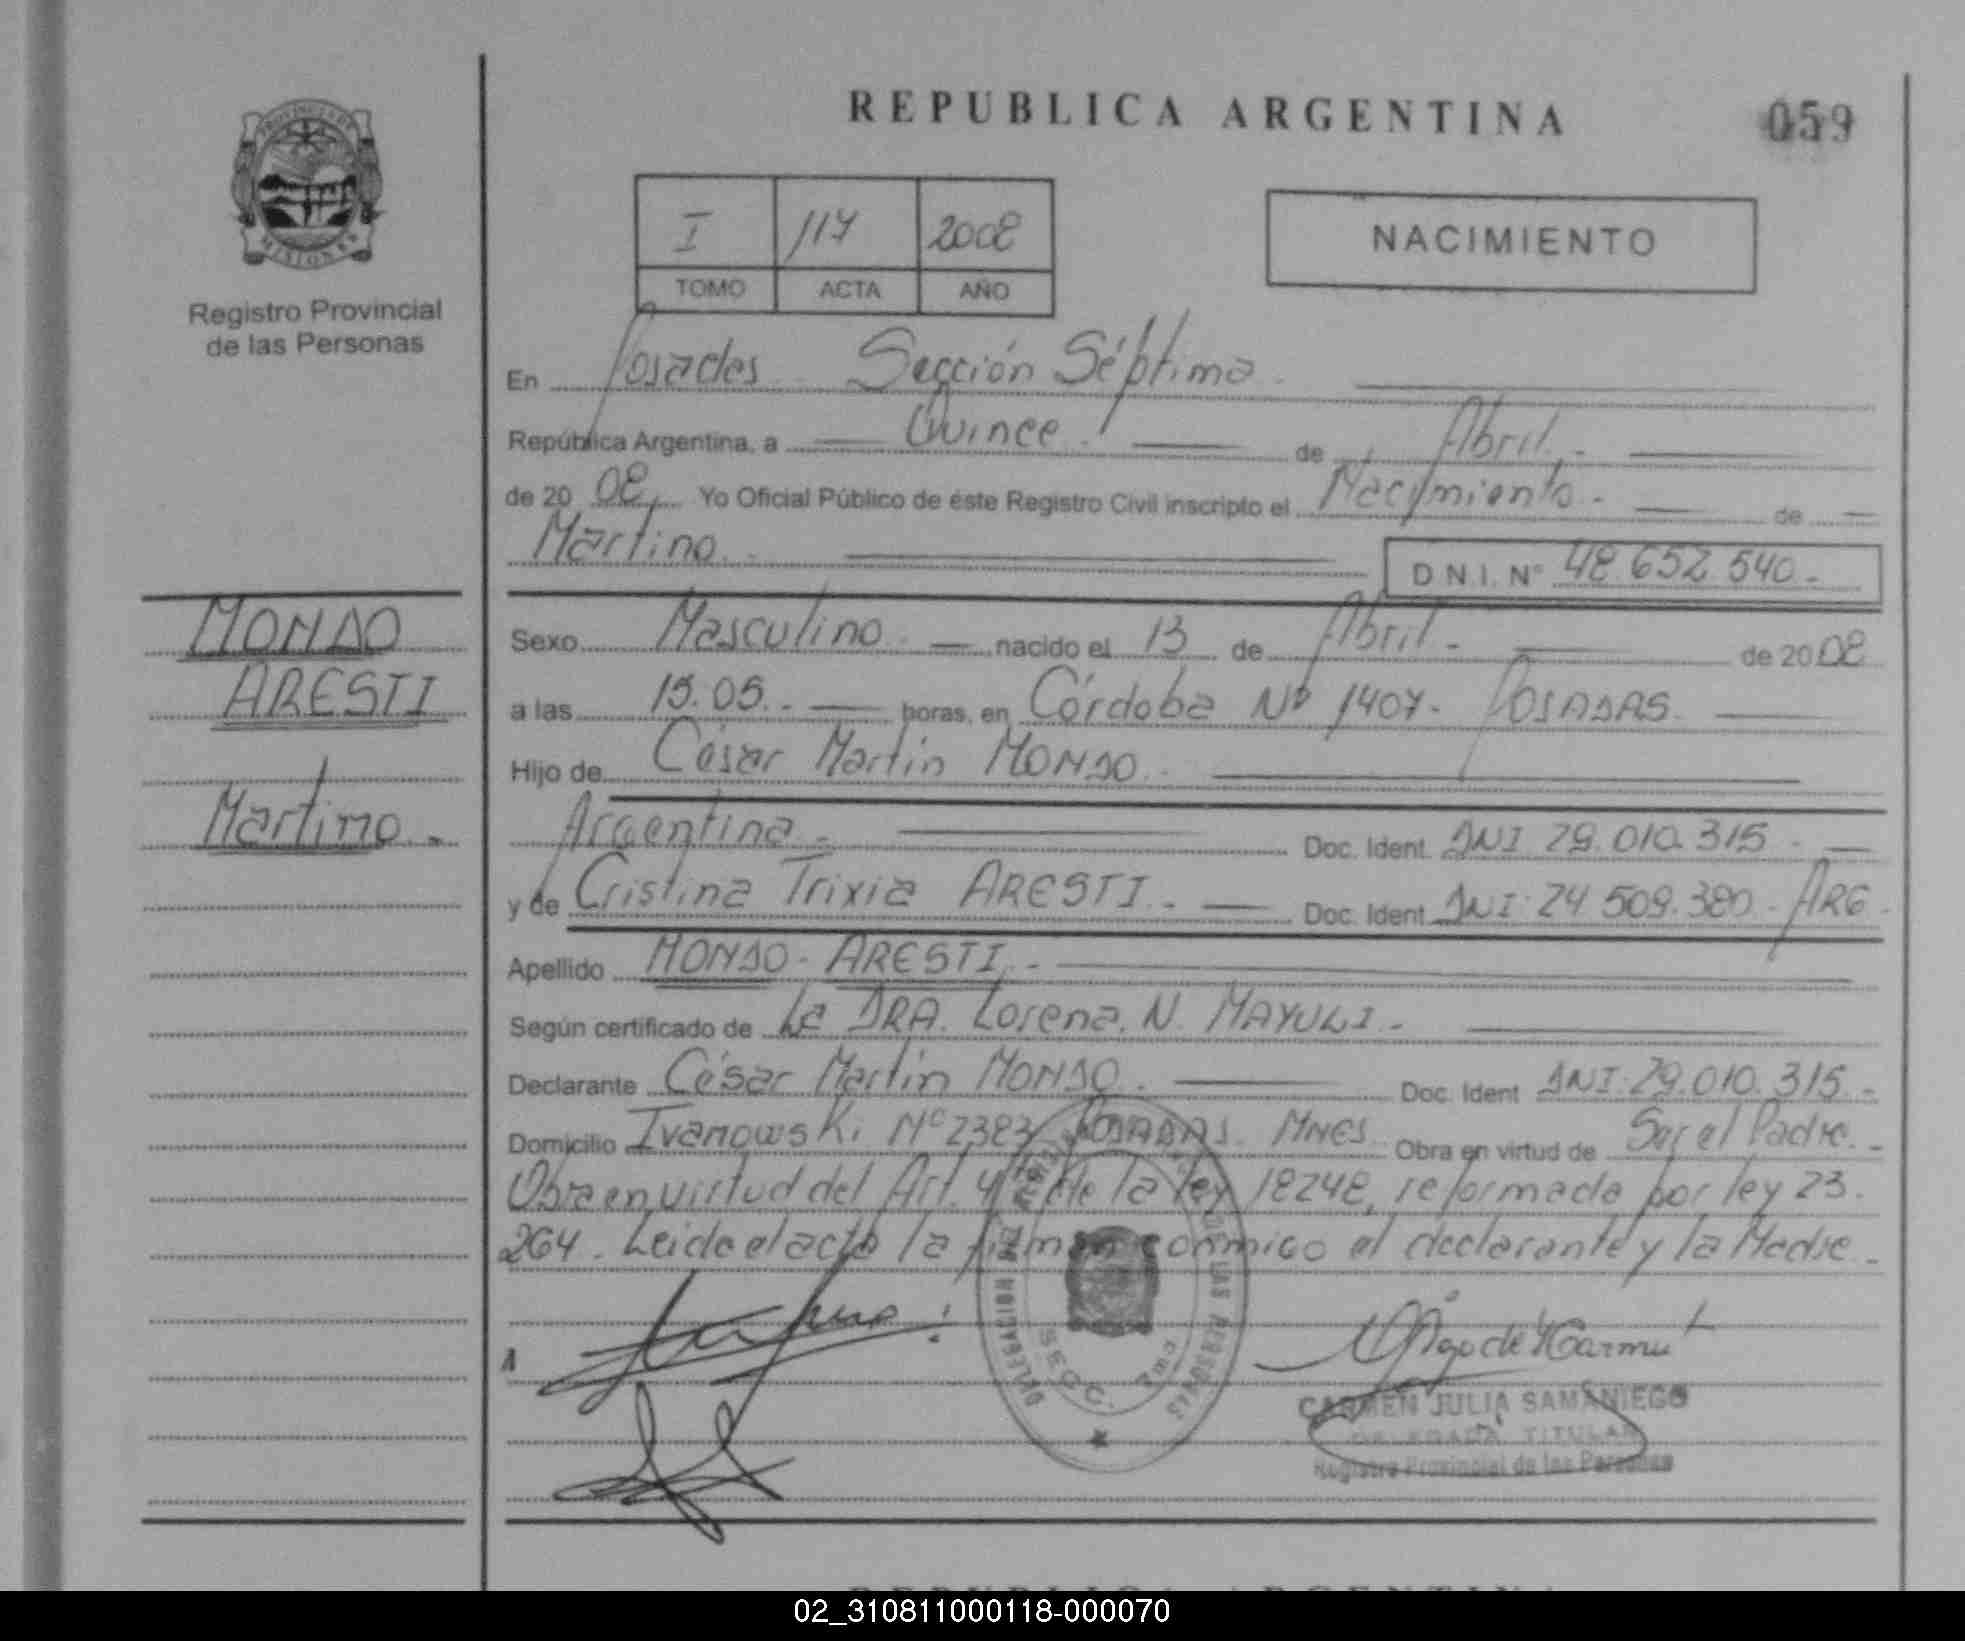 REPUBLICA ARGENTINA
059
PROVINCIA DE MISIONES
Registro Provincial
de las Personas
I 117 2008
TOMO ACTA AÑO
NACIMIENTO
En Posadas Sección Séptima.
República Argentina, a Quince. de Abril.-
de 20 08, Yo Oficial Público de éste Registro Civil inscripto el Nacimiento.- de
Martino.-
D.N.I. N° 48.652.540.-
MONDO
ARESTI
Martino.-
Sexo Masculino.- nacido el 13 de Abril.- de 20 08
a las 15.05.- horas, en Córdoba N° 1407- POSADAS.
Hijo de César Martin MONDO.
Argentina.- Doc. Ident. DNI 29.010.315.-
y de Cristina Trixia ARESTI.- Doc. Ident. DNI: 24.509.380.- ARG.
Apellido MONDO- ARESTI.-
Según certificado de La DRA. Lorena. N. MAYULI.-
Declarante César Martin MONDO. Doc. Ident. DNI: 29.010.315.-
Domicilio Ivanowski N° 2383 POSADAS. MNES. Obra en virtud de Ser el Padre.-
Obra en virtud del Art. 4° de la ley 18248, reformada por ley 23.
264. Leida el acta la firman conmigo el declarante y la Madre.-
DELEGACION DE LAS PERSONAS
SECC. 7ma
CARMEN JULIA SAMANIEGO
DELEGADA TITULAR
Registro Provincial de las Personas
02_310811000118-000070